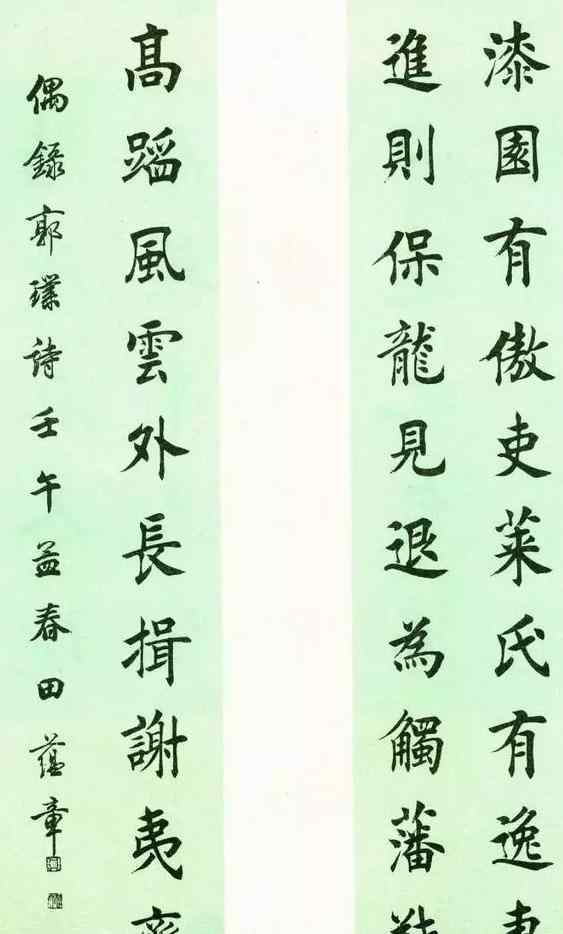 漆園有傲吏萊氏有逸
進則保龍見退為觸藩
高蹈風雲外長揖謝夷
偶錄郭璞詩壬午孟春田蘊章